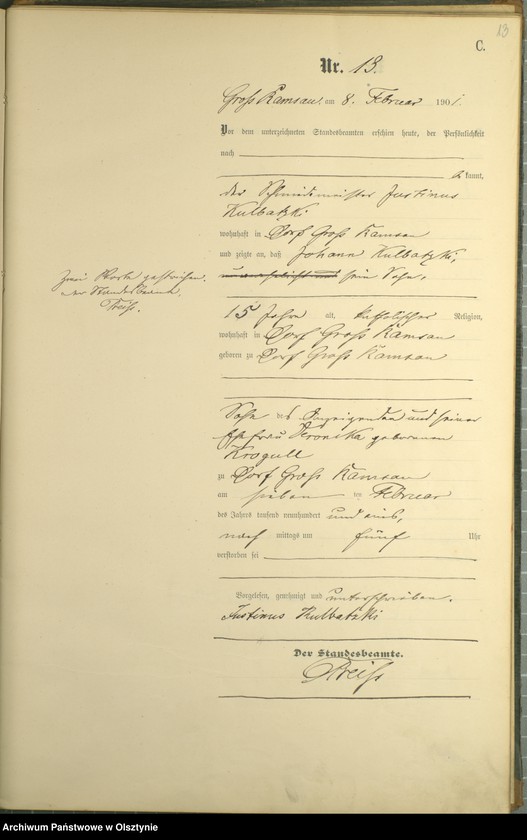 13
C.
Nr. 13.
Gross Ramsau, am 8. Februar 1901.
Vor dem unterzeichneten Standesbeamten erschien heute, der Persönlichkeit
nach
kannt,
der Schmiedemeister Justinus
Kulbatzki
wohnhaft in Dorf Gross Ramsau
und zeigte an, daß Johann Kulbatzki,
sein Sohn,
Zwei Worte gestrichen.
Der Standesbeamte.
Preiss.
15 Jahre alt, katholischer Religion,
wohnhaft in Dorf Gross Ramsau
geboren zu Dorf Gross Ramsau
Sohn des Anzeigenden und seiner
Ehefrau Veronika geborenen
Krogull
zu Dorf Gross Ramsau
am sieben ten Februar
des Jahres tausend neunhundert und eins,
nach mittags um fünf Uhr
verstorben sei
Vorgelesen, genehmigt und unterschrieben.
Justinus Kulbatzki
Der Standesbeamte.
Preiss
Archiwum Państwowe w Olsztynie